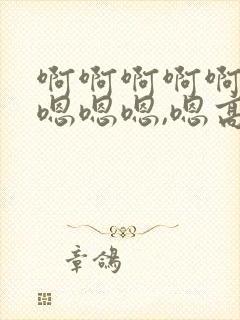 啊啊啊啊啊
嗯嗯嗯,嗯高
章鸽